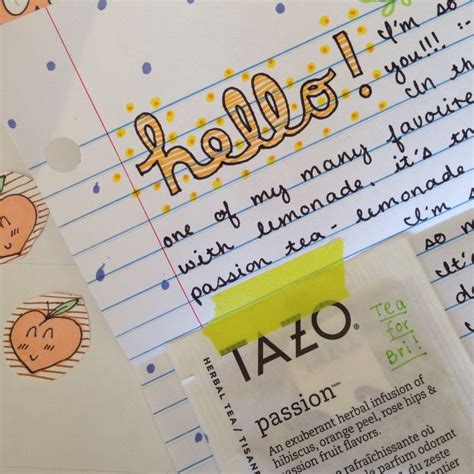 hello!
I'm so
you!!! :-
In th
one of my many favorite
with lemonade. it's t
passion tea - lemonade
I'm
so m
It's
de
TAZO®
HERBAL TEA / TISAN
Tea
for
Bri!
passion™
An exuberant herbal infusion of
hibiscus, orange peel, rose hips &
passion fruit flavors.
rafraîchissante où
parfum odorant
du zeste